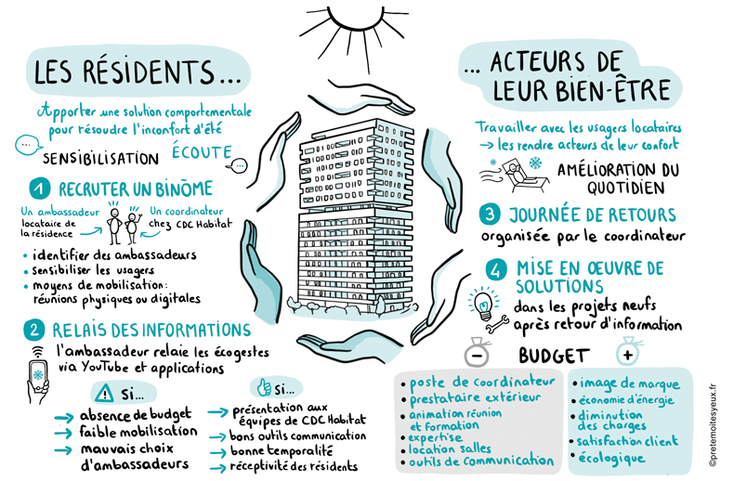 LES RÉSIDENTS...
Apporter une solution comportementale
pour résoudre l'inconfort d'été
SENSIBILISATION ÉCOUTE
1 RECRUTER UN BINÔME
Un ambassadeur
locataire de
la résidence
Un coordinateur
chez CDC Habitat
• identifier des ambassadeurs
• sensibiliser les usagers
• moyens de mobilisation :
réunions physiques ou digitales
2 RELAIS DES INFORMATIONS
l'ambassadeur relaie les écogestes
via YouTube et applications
Si...
→ absence de budget
→ faible mobilisation
→ mauvais choix
d'ambassadeurs
Si...
→ présentation aux
équipes de CDC Habitat
→ bons outils communication
→ bonne temporalité
→ réceptivité des résidents
... ACTEURS DE
LEUR BIEN-ÊTRE
Travailler avec les usagers locataires
→ les rendre acteurs de leur confort
AMÉLIORATION DU
QUOTIDIEN
3 JOURNÉE DE RETOURS
organisée par le coordinateur
4 MISE EN ŒUVRE DE
SOLUTIONS
dans les projets neufs
après retour d'information
- BUDGET +
• poste de coordinateur
• prestataire extérieur
• animation réunion
et formation
• expertise
• location salles
• outils de communication
• image de marque
• économie d'énergie
• diminution
des charges
• satisfaction client
• écologique
©pretemoitesyeux.fr